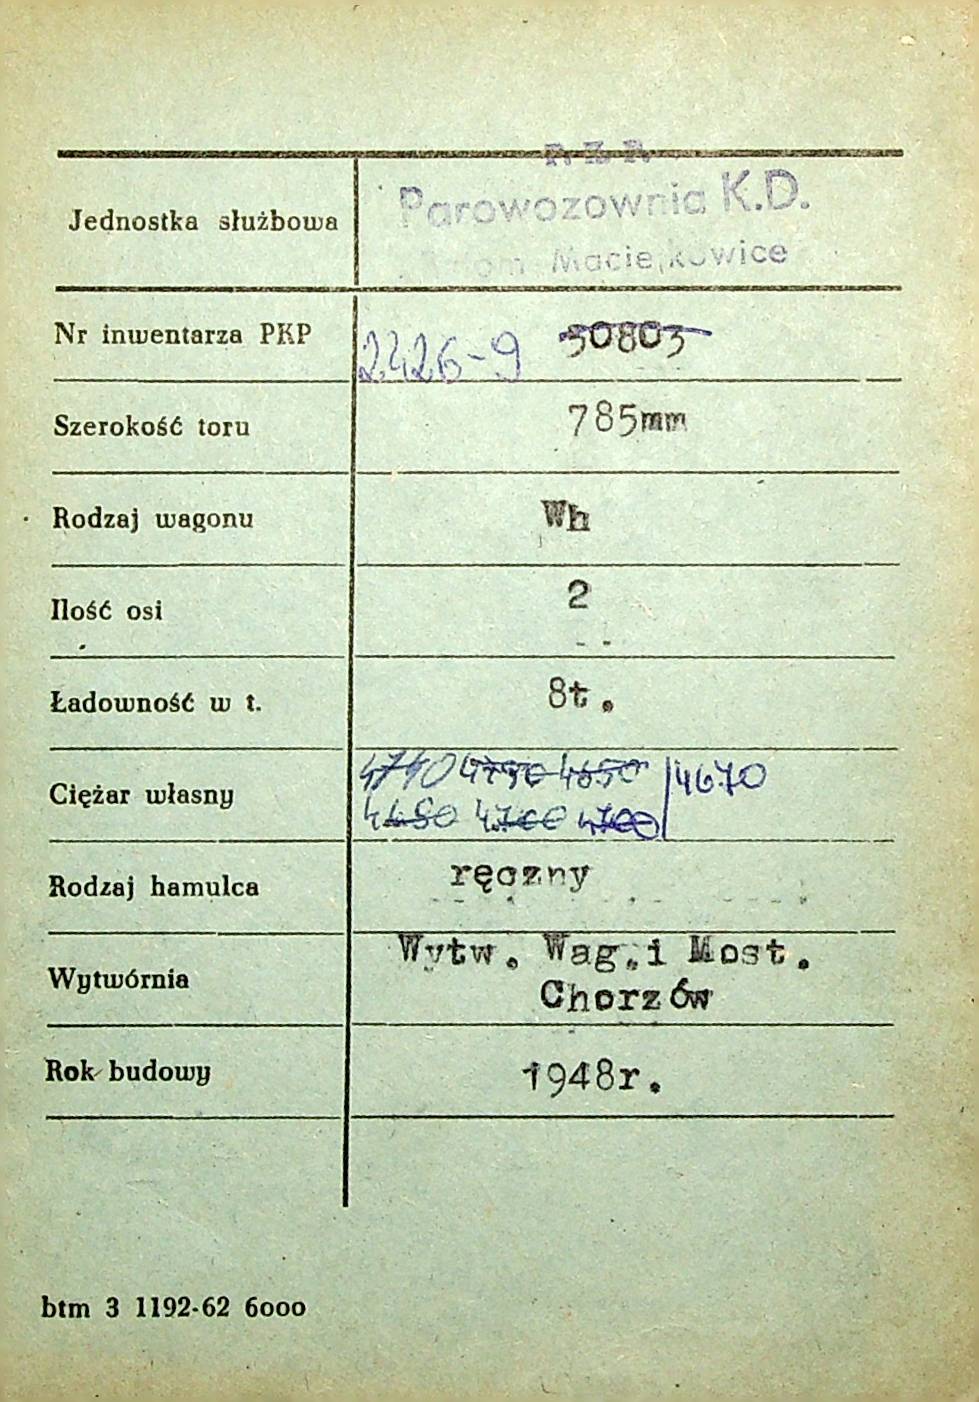 P. K. P.
Jednostka służbowa Parowozownia K.D.
Maciejkowice
Nr inwentarza PKP 2426-9 30803
Szerokość toru 785mm
Rodzaj wagonu Wh
Ilość osi 2
Ładowność w t. 8t.
4740 4730 4650 4670
Ciężar własny
4680 4700 4700
Rodzaj hamulca ręczny
Wytw. Wag. i Most.
Wytwórnia
Chorzów
Rok budowy 1948r.
btm 3 1192-62 6000